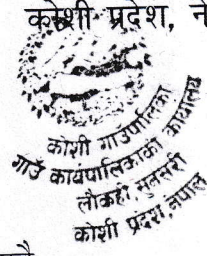 कोशी प्रदेश, ने
कोशी गाउँपालिका
गाउँ कार्यपालिकाको कार्यालय
लौकही, सुनसरी
कोशी प्रदेश, नेपाल